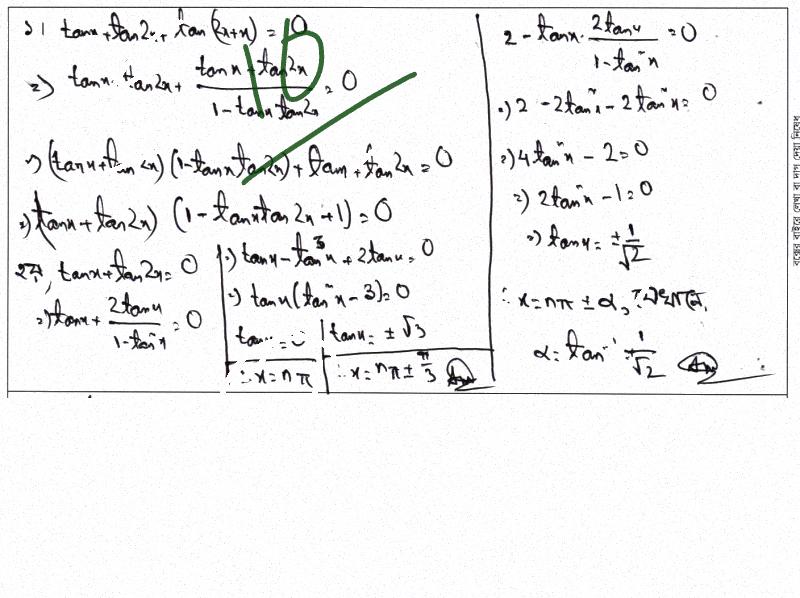 ১। tanx + tan2x + tan(2x+x) = 0
=> tanx + tan2x + (tanx + tan2x)/(1 - tanx tan2x) = 0
=> (tanx + tan2x) (1 - tanx tan2x) + tanx + tan2x = 0
=> (tanx + tan2x) (1 - tanx tan2x + 1) = 0
হয়, tanx + tan2x = 0
=> tanx + 2tanx/(1 - tan²x) = 0
=> tanx - tan³x + 2tanx = 0
=> tanx (tan²x - 3) = 0
tanx = 0
∴ x = nπ
tanx = ± √3
∴ x = nπ ± π/3 Ans
2 - tanx · 2tanx/(1 - tan²x) = 0
=> 2 - 2tan²x - 2tan²x = 0
=> 4tan²x - 2 = 0
=> 2tan²x - 1 = 0
=> tanx = ± 1/√2
∴ x = nπ ± α,
α = tan⁻¹ 1/√2 Ans
10
বক্সের বাইরে লেখা বা দাগ দেয়া নিষেধ